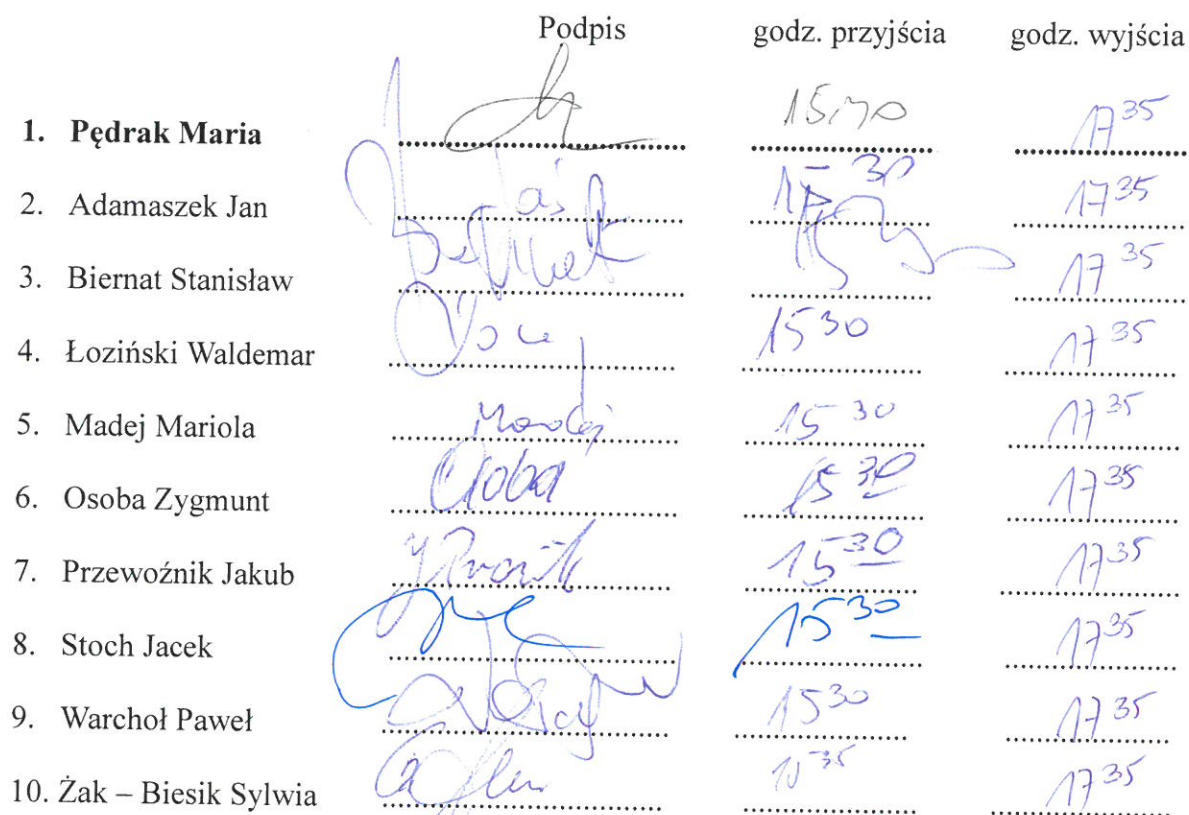 Podpis godz. przyjścia godz. wyjścia
1. Pędrak Maria 17 35
2. Adamaszek Jan 15 30 17 35
3. Biernat Stanisław 17 35
4. Łoziński Waldemar 15 30 17 35
5. Madej Mariola Madej 15 30 17 35
6. Osoba Zygmunt Osoba 15 30 17 35
7. Przewoźnik Jakub 15 30 17 35
8. Stoch Jacek 15 30 17 35
9. Warchoł Paweł 15 30 17 35
10. Żak – Biesik Sylwia 17 35